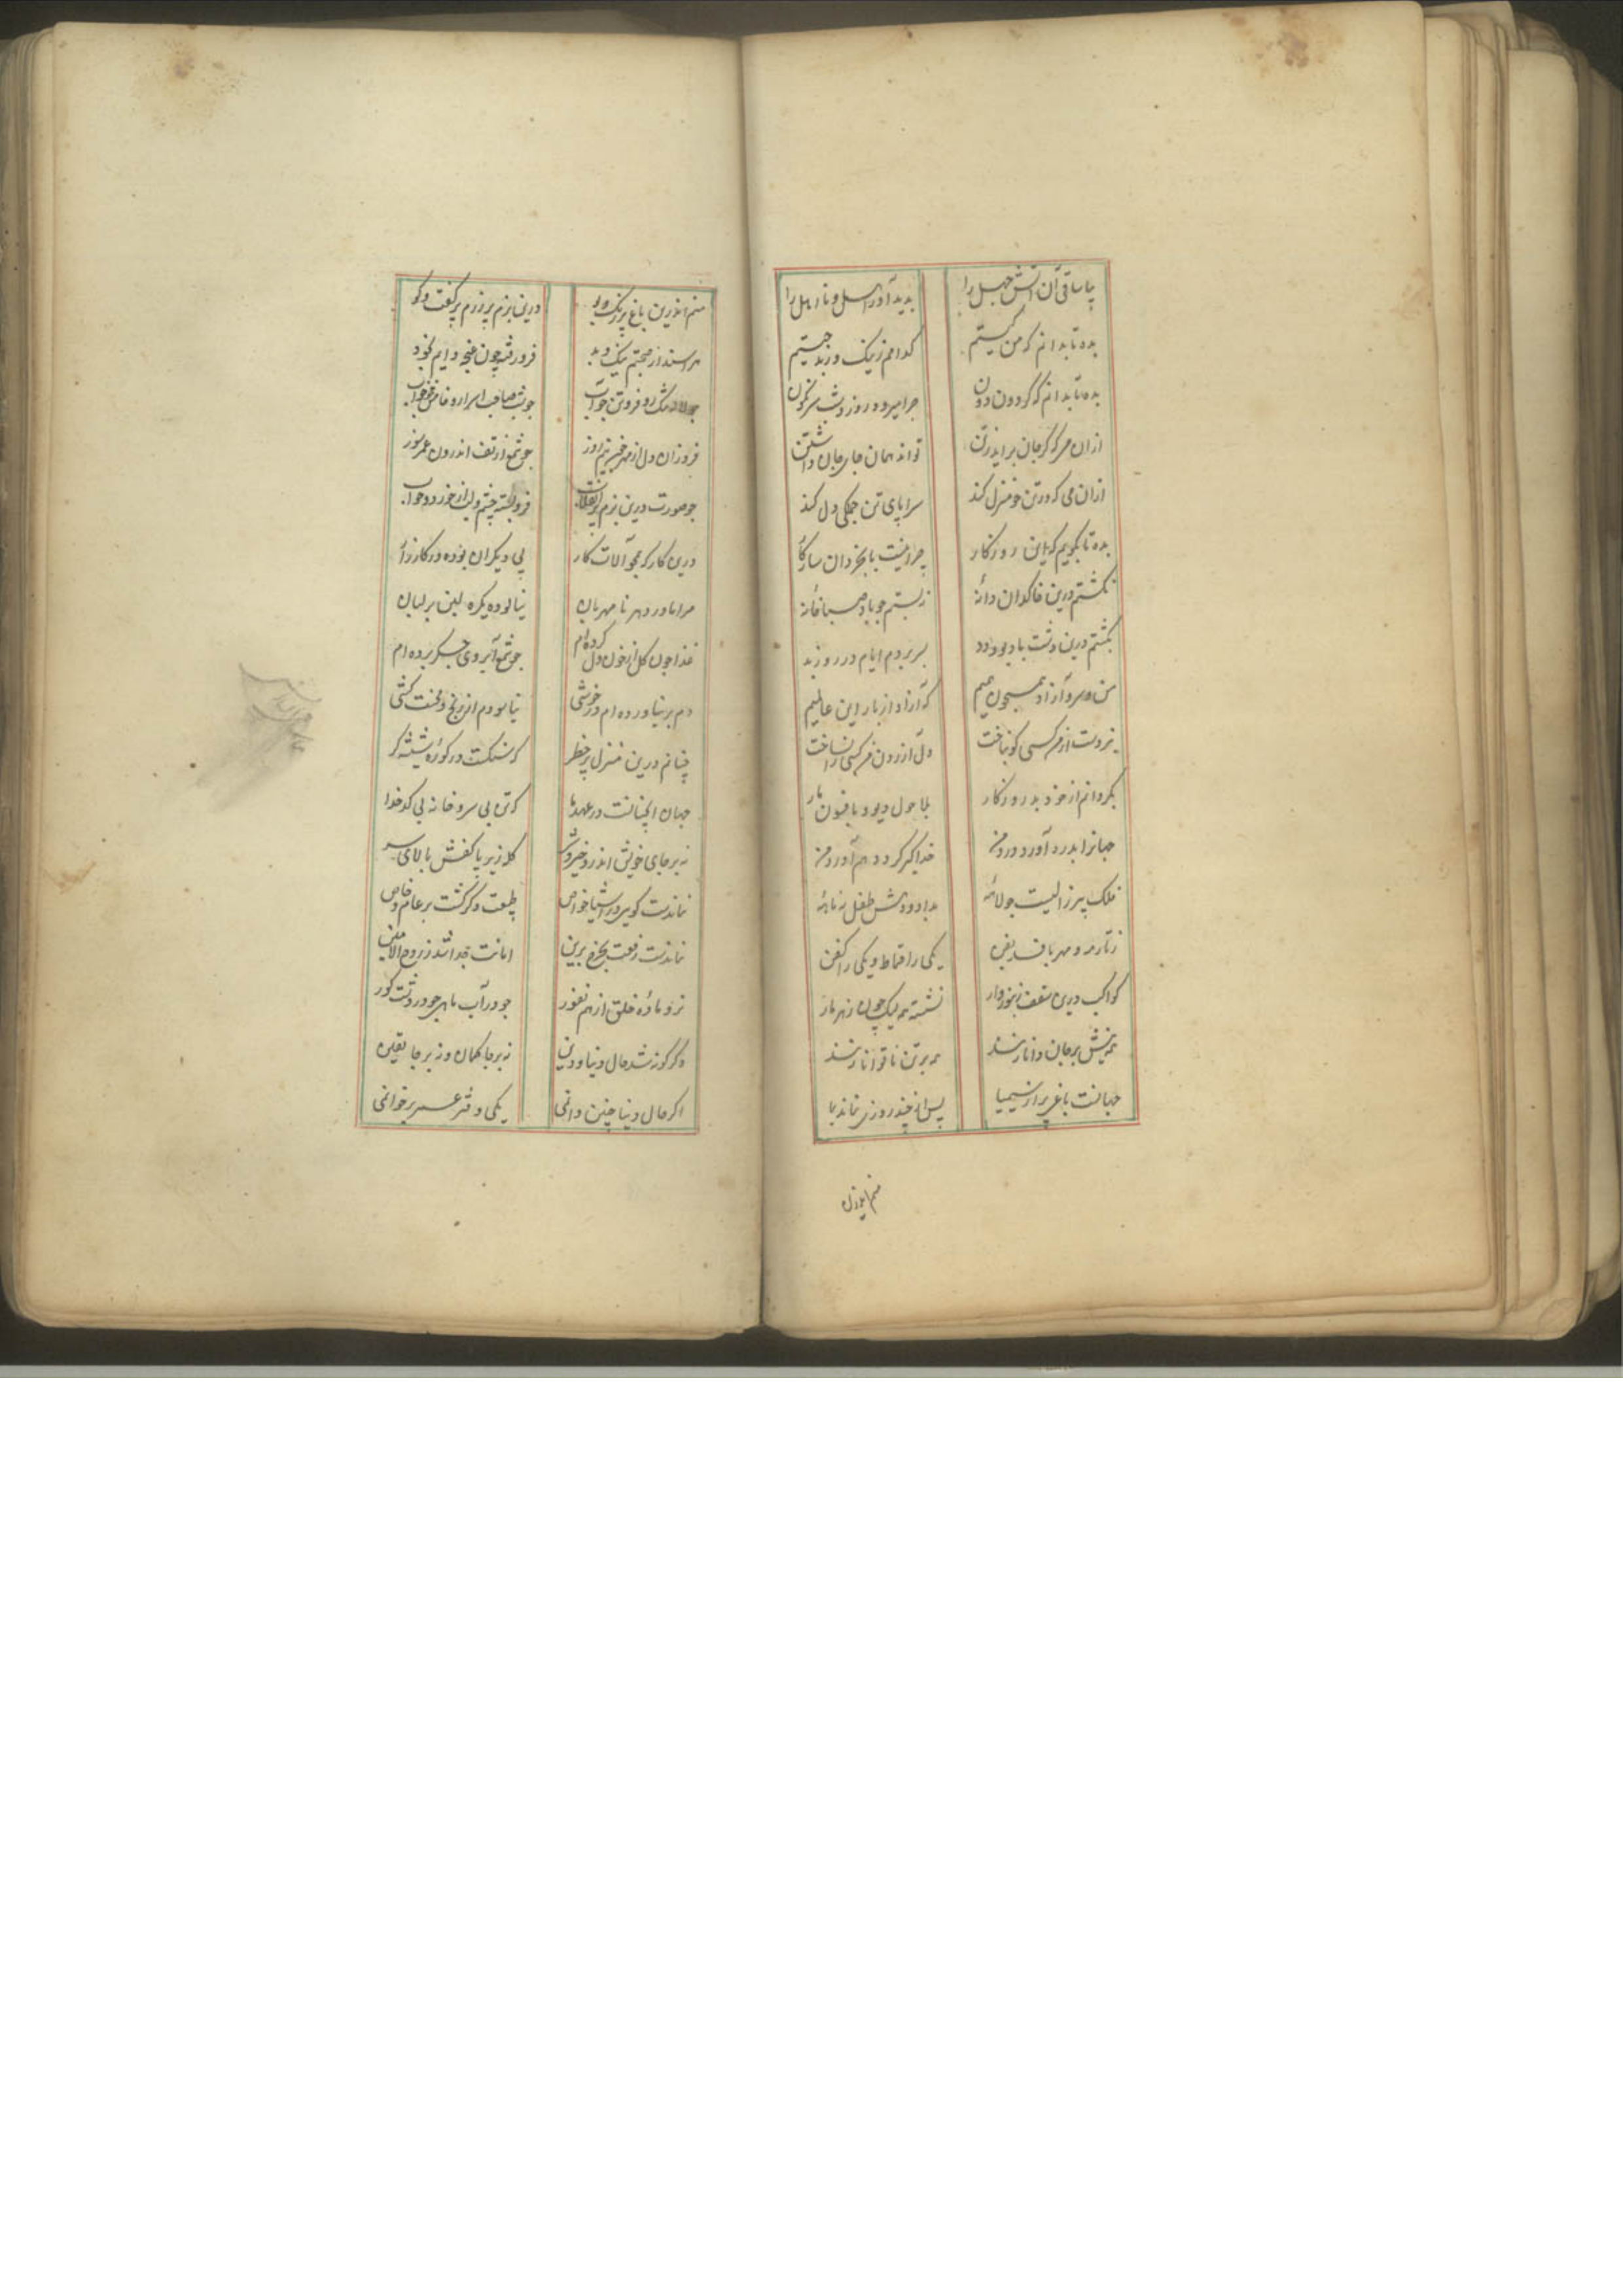 بیا ساقی آن آتش جهل را پدید آور اسل و نااهل را
بده تا بدانم که من کیستم کدامم ز نیک و ز بد چیستم
بده تا بدانم که گردون دون چرا میرود روز و شب سرنگون
ازان می که گر جان براندز تن تواند همان جای جان داشتن
ازان می که در تن چو منزل کند سراپای تن جملگی دل کند
بده تا بگویم که این روزگار چرا نیست با بخردان سازگار
نکشتم درین خاکدان دانهٔ نبستم چو باد صبا خانهٔ
بگشتم درین دشت با دیو و دد بسر بردم ایام در روز بد
من و سرو آزاد همچون همیم که آزاد از بار این عالمیم
نرست از کسی کو نباخت دل آزردن هر کسی را نساخت
بگردانم از خود بد روزگار بلاحول دیو و بافسون مار
جهانرا بدرد آورد درد من خدا گیر گردد هم آورد من
فلک پیر زالیست جولانهٔ بداد و دهش طفل نه نانهٔ
ز تار مه و مهر بافد یقین یکی را قماط و یکی را کفن
کواکب درین سقف زنبوروار نشسته همه لیک چون زهر مار
همه نیش بر جان دانا زنند همه بر تن ناتوانا زنند
جهانست باغی پر از سیمیا پس از چند روزی نماند بما
منم اندرین
منم اندرین باغ پر رنگ و بو درین بزم پر رزم پر گفت و گو
هراسند از صحبتم نیک و بد فرو رفته چون غنچه دایم بخود
چو لاله تنک رو فروتن چو آب چو شب صاحب اسرار و خامش چو خواب
فروزان دل از مهر خیر نیم روز چو شمع از تف اندرون عمر سوز
چو صورت درین بزم پر انقلاب فرو بسته چشم و لب از خورد و خواب
درین کارگه همچو آلات کار پی دیگران بوده در کارزار
مرا مادر دهر نامهربان نیالوده یکره لبن بر لبان
غذا چون گل از خون دل کرده‌ام چو شمع آبروی جگر برده‌ام
دم بر نیاورده‌ام در خوشی نیاسودم از رنج و محنت کشی
چنانم درین منزل پر خطر که سنگست در کورهٔ شیشه‌گر
جهان آنچنانست در عهد ما که تن بی سر و خانه بی کدخدا
نه بر جای خویش اندرو خیر و شر کله زیر پا کفش بالای سر
نماندست گویی در اشیا خواص طبیعت دگر گشت بر عام و خاص
نماندست رفعت بچرخ برین امانت جدا شد ز روح الامین
نر و مادهٔ خلق از هم نفور چو در آب ماهی چو در دشت گور
دگرگونه شد حال دنیا و دین نه بر جا گمان و نه بر جا یقین
اگر حال دنیا چنین دانمی یکی دفتر عمر بر خوانمی